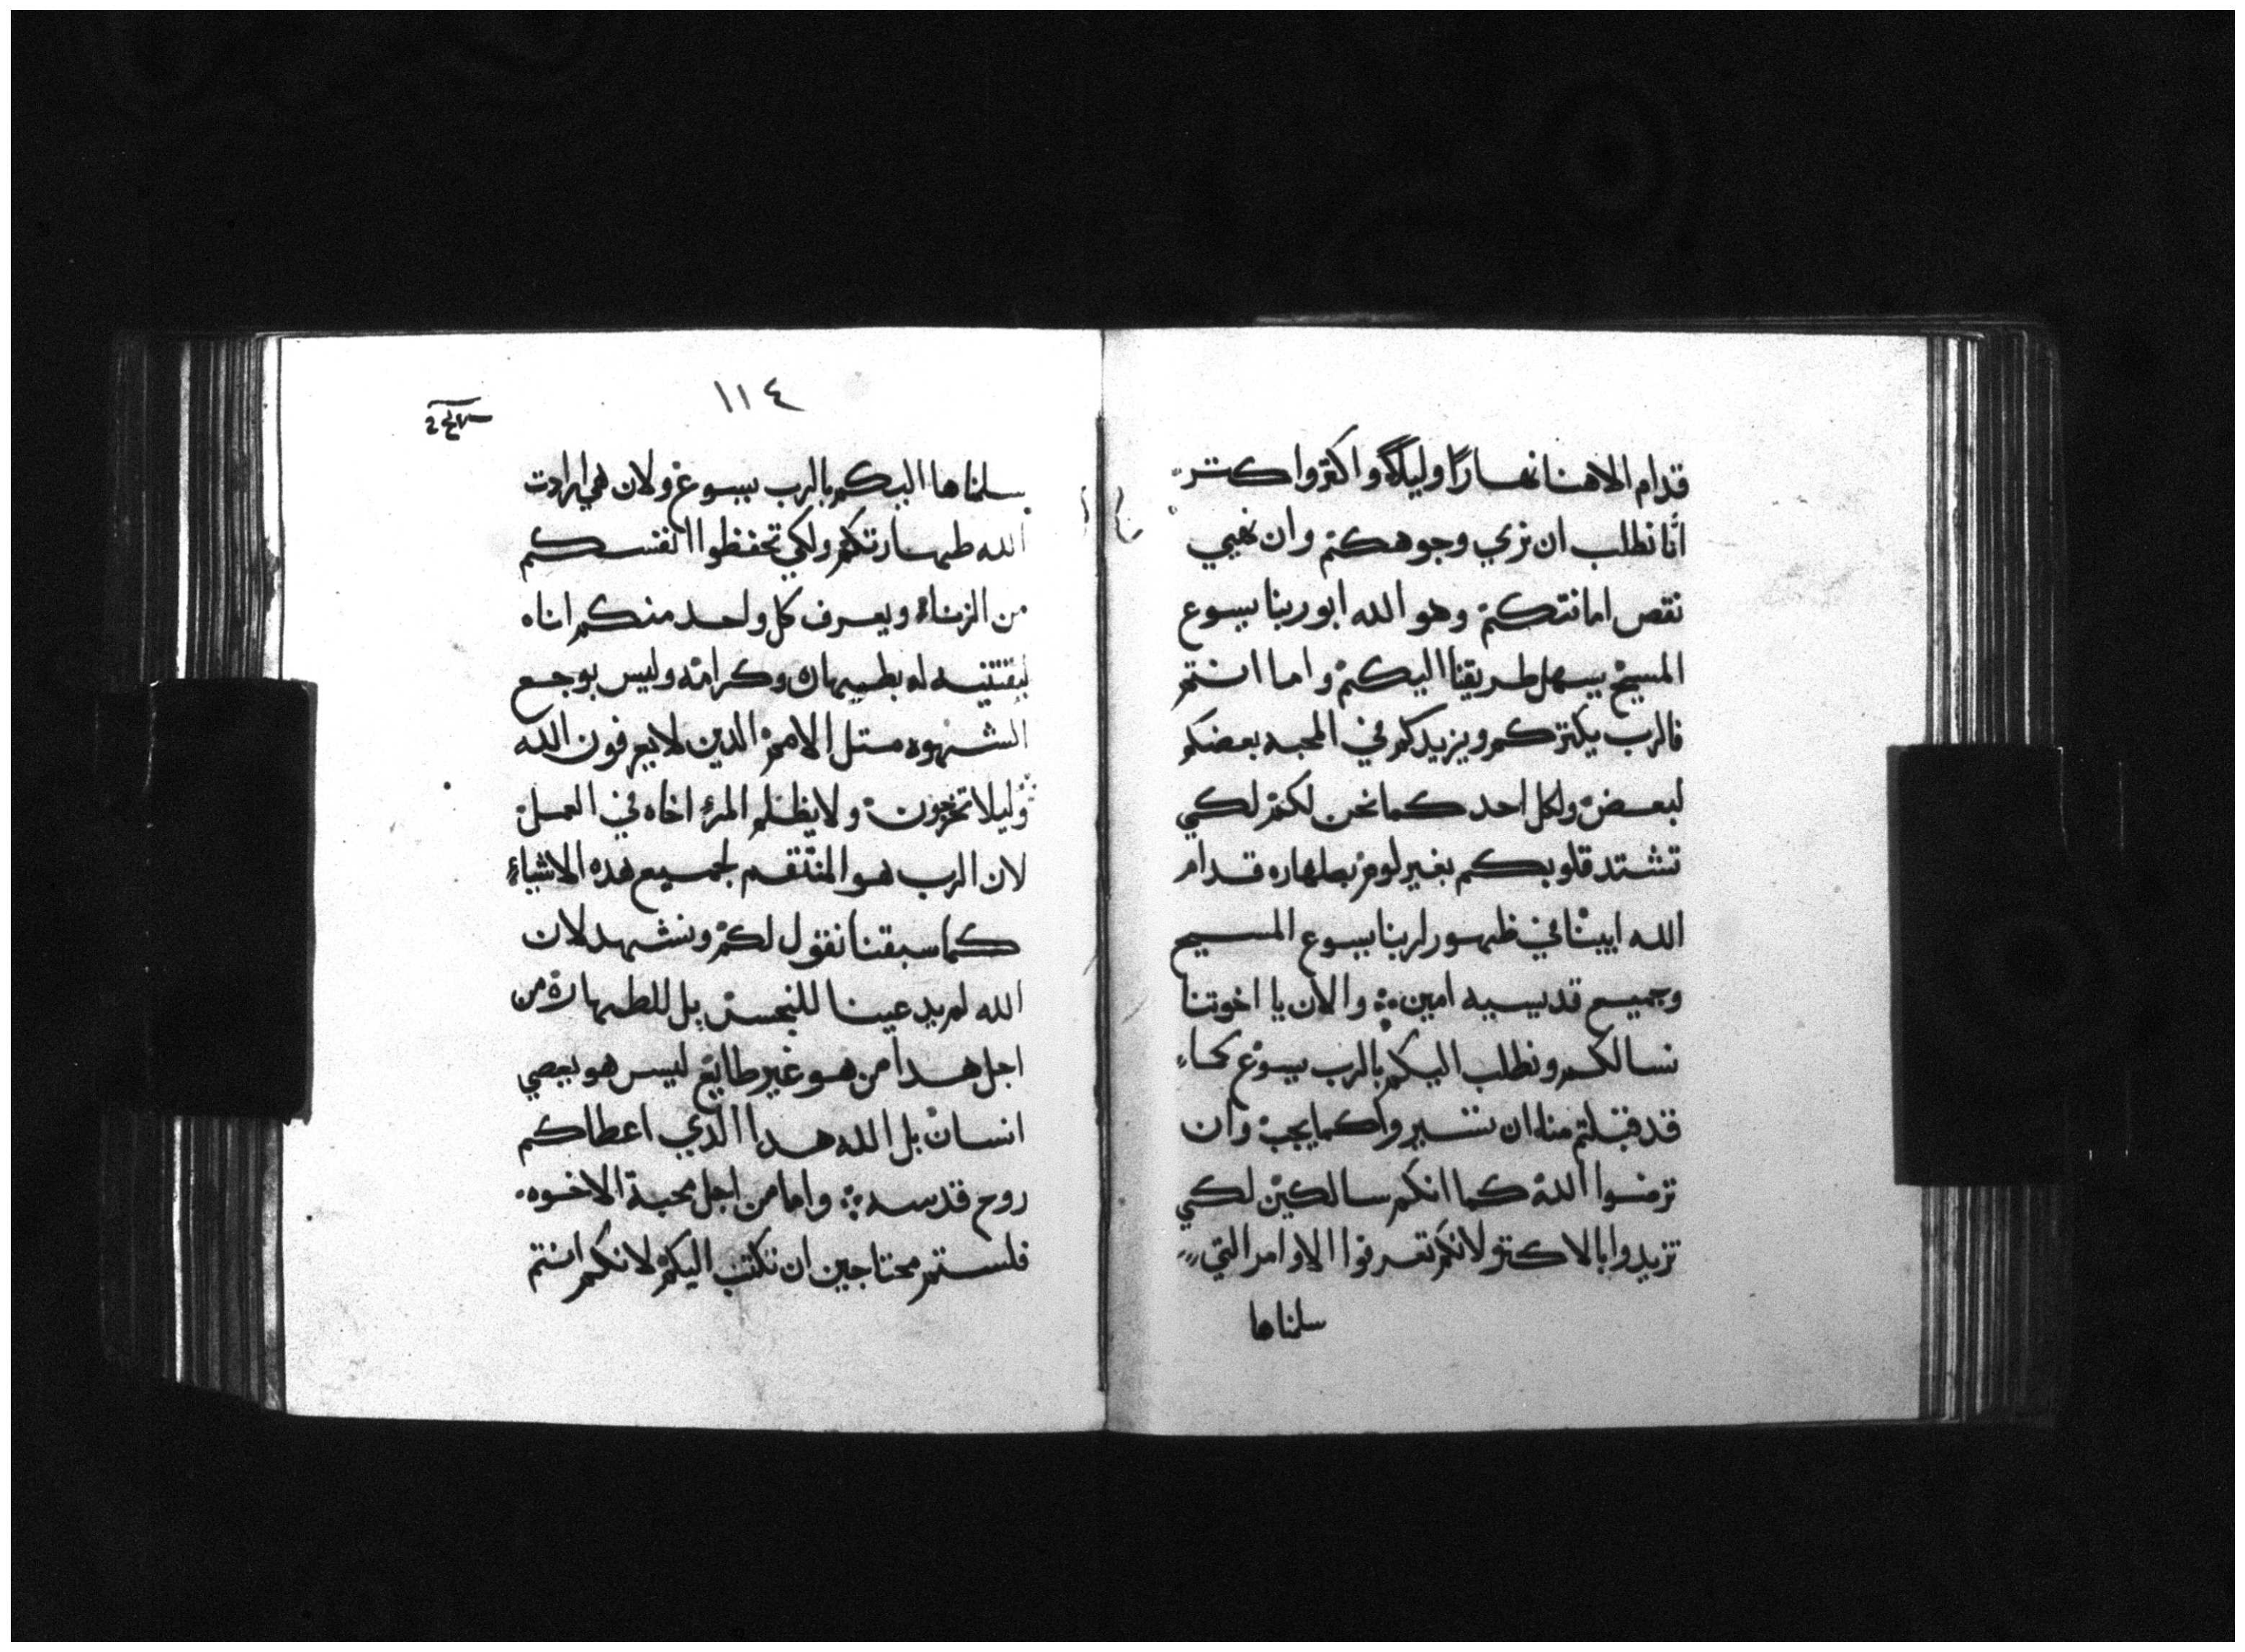 قدام الاهنا نهارًا وليلًا واكثر واكتر
انَّا نطلب ان نري وجوهكم وان نهيي
نقص امانتكم وهو الله ابو ربنا يسوع
المسيح يسهل طريقنا اليكم واما انتم
فالرب يكثركم ويزيدكم في المحبه بعضكم
لبعض ولكل احد كما نحن لكم لكي
تشتد قلوبكم بغير لوم بطهاره قدام
الله ابينا في ظهور ربنا يسوع المسيح
وجميع قديسيه امين والان يا اخوتنا
نسالكم ونطلب اليكم بالرب يسوع كما
قد قبلتم منا ان تسيروا كما يجب وان
ترضوا الله كما انكم سالكين لكي
تزيدوا بالاكتر لانكم تعرفوا الاوامر التي
سلمناها
١١٤
سلمناها اليكم بالرب يسوع ولان هي ارادت
الله طهارتكم ولكي تحفظوا انفسكم
من الزناء ويعرف كل واحد منكم اناه
ليقتنيه له بطهارة وكرامة وليس بوجع
الشهوه متل الامم الدين لا يعرفون الله
وليلا تخرجون ولا يظلم المرء اخاه في العمل
لان الرب هو المنتقم لجميع هده الاشياء
كما سبقنا نقول لكم ونشهد لان
الله لم يدعينا للنجس بل للطهارة من
اجل هدا من هو غير طايع ليس هو يعصي
انسان بل الله هدا الدي اعطاكم
روح قدسه واما من اجل محبة الاخوه
فلستم محتاجين ان نكتب اليكم لانكم انتم